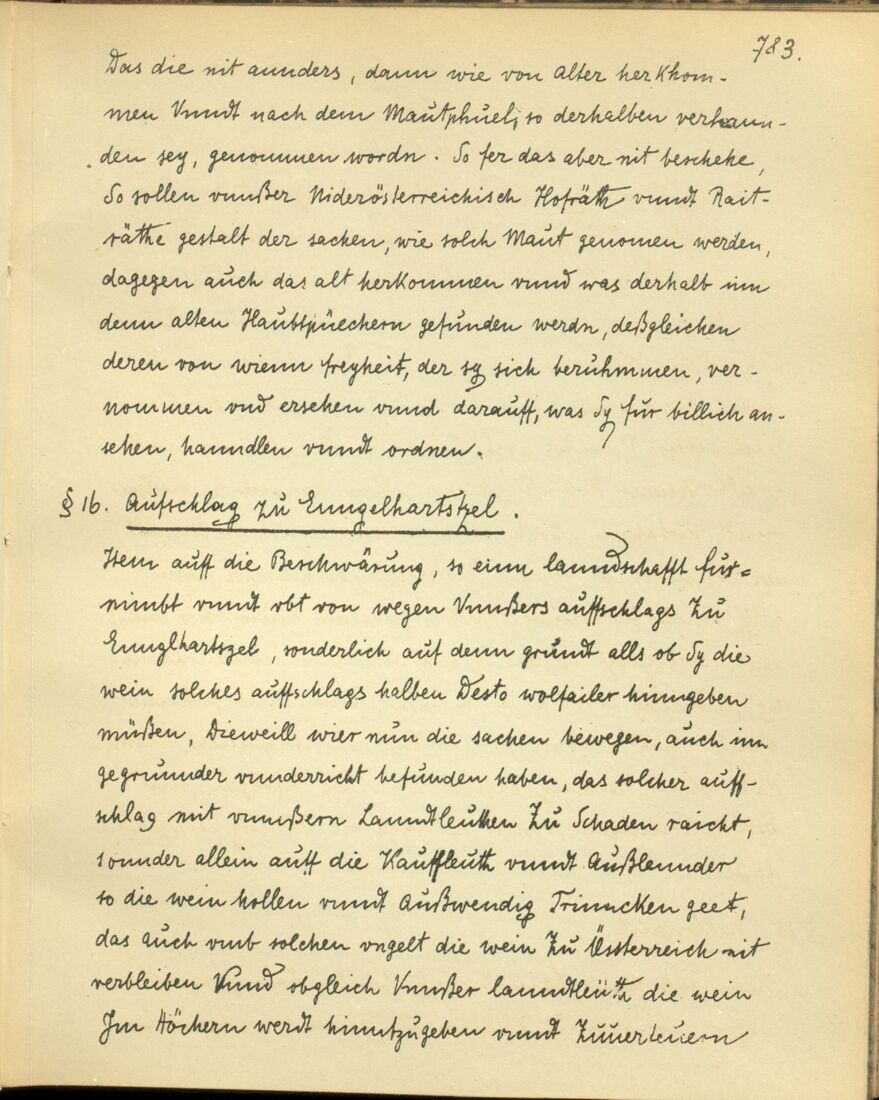 783.
Das die nit annders, dann wie von alter herkhom-
men Vnndt nach dem Mautphuel, so derhalben verhann-
den sey, genommen wordn. So fer das aber nit beschehe,
So sollen vnnßer Niderösterreichisch Hofräth vnndt Rait-
räthe gestalt der sachen, wie solch Maut genomen werden,
dagegen auch das alt herkommen vnnd was derhalb inn
denn alten Haubtpüechern gefunden werdn, deßgleichen
deren von wienn freyheit, der sy sich beruhmmen, ver-
nommen vnd ersehen vnnd darauff, was Sy für billich an-
sehen, hanndlen vnndt ordnen.
§ 16. Aufschlag zu Enngelhartszel.
Item auff die Beschwärung, so einn lanndschafft für=
nimbt vnndt vbt von wegen Vnnßers auffschlags Zu
Ennglhartszel, sonderlich auf denn grundt alls ob Sy die
wein solches auffschlags halben Desto wolfailer hinngeben
müßen, Dieweill wier nun die sachen bewegen, auch inn
gegrunnder vnnderricht befunden haben, das solcher auff-
schlag nit vnnßern Lanndtleuthen Zu Schaden raicht,
sonnder allein auff die Kauffleuth vnndt Außlennder
so die wein hollen vnndt Außwendig Trinncken geet,
das auch vmb solchen vngelt die wein Zu Össterreich nit
verbleiben Vnnd obgleich Vnnßer lanndtleüth die wein
Im Höchern werdt hinntzugeben vnndt Zuuerteuern